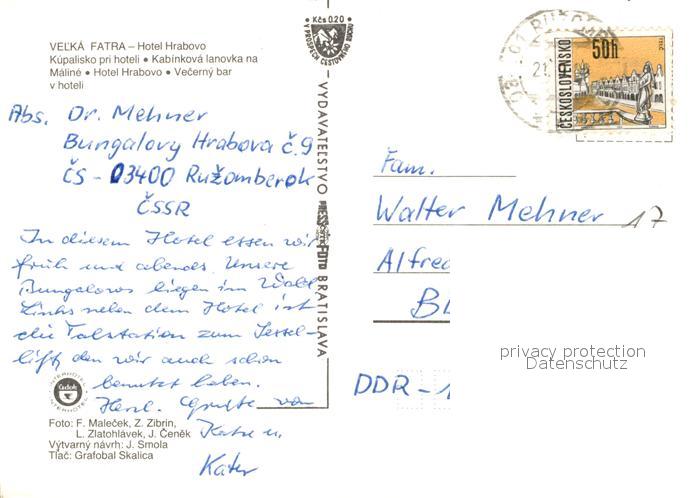 VEĽKÁ FATRA – Hotel Hrabovo
Kúpalisko pri hoteli • Kabínková lanovka na
Máliné • Hotel Hrabovo • Večerný bar
v hoteli
Abs. Dr. Mehner
Bungalovy Hrabova č. 9
ČS - 03400 Ružomberok
ČSSR
In diesem Hotel essen wir
früh und abends. Unsere
Bungalows liegen im Wald
Links neben dem Hotel ist
die Talstation zum Sessel-
lift, den wir auch schon
benutzt haben.
Herzl. Grüße von
Kater
Foto: F. Maleček, Z. Zibrin,
L. Zlatohlávek, J. Čeněk
Výtvarný návrh: J. Smola
Tlač: Grafobal Skalica
INTERHOTEL
čedok
INTERHOTEL
Kčs 0.20
V PROSPECH CESTOVNÉHO RUCHU
VYDAVATEĽSTVO
PRESSFOTO
BRATISLAVA
50h
ČESKOSLOVENSKO
Fam.
Walter Mehner 17
Alfred
DDR - 1
privacy protection
Datenschutz